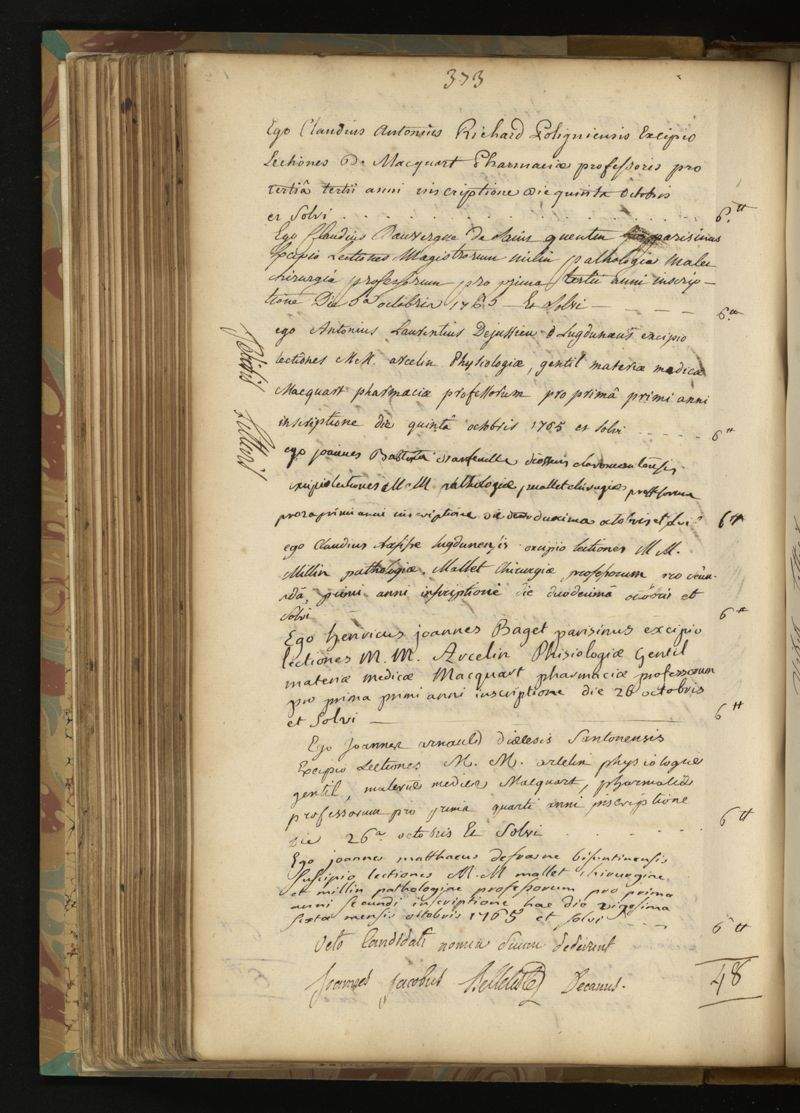 373
Ego Claudius Antonius Richard Poligniensis Excipio
Lectiones D. Macquart Pharmaciæ professoris pro
tertiâ tertii anni inscriptione die quinta octobris
et Solvi . . . . . . . . 6.tt
Ego Claudius Dauvergne de Saint quentin parisinus
Excipio Lectiones Magistrorum milin pathologiæ malet
chirurgiæ professorum pro prima tertii anni inscrip-
tione Die 6a octobris 1765 Et Solvi — — — 6.tt
ego Antonius Laurentius Dejussieu Lugdunæus excipio
lectiones M.M. arcelin Physiologiæ, gentil materiæ medicæ
Macquart pharmaciæ professorum pro primâ primi anni
inscriptione die quintâ octobris 1765 et solvi . . . . . 6tt
ego joannes Baptista
excipio lectiones M. M. pathologiæ, mallet chirurgiæ professorum
pro 2a primi anni inscriptione die duodecima octobris et solvi 6tt
ego Claudius lugdunensis excipio lectiones M M.
Millin pathologiæ, Mallet Chirurgiæ, professorum pro secun-
dâ, primi anni inscriptione die duodecimâ octobris et
solvi — 6tt
Ego henricus joannes Baget parisinus excipio
lectiones M. M. Arcelin Phisiologiæ Gentil
materiæ medicæ Macquart pharmaciæ professorum
pro prima primi anni inscriptione die 26 octobris
et Solvi — 6tt
Ego Joannes arnauld diœcesis Santonensis
Excipio Lectiones M. M. arcelin physiologiæ
gentil, materiæ medicæ Macquart, pharmaciæ
professorum pro prima quarti anni inscriptione
die 26a octobris Et Solvi . . . . . 6tt
Ego joannes matthaeus defrasne bisuntinensis
Suscipio lectiones M. M mallet chirurgiæ
et millin pathologiæ professorum pro prima
anni secundi inscriptione hac die vigesima
sexta mensis octobris 1765 et solvi — — — 6tt
Octo Candidati nomina suum dederunt
Joannes Jacobus Belleteste Decanus. 48